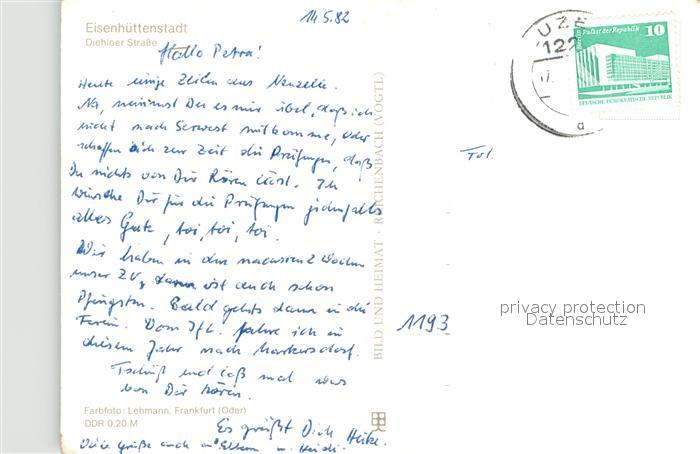 14.5.82
Eisenhüttenstadt
Diehloer Straße
Hallo Petra!
Heute einige Zeilen aus Neuzelle.
Na, nimmst Du es mir übel, daß ich
nicht nach Serwest mitkomme, oder
schaffen Dich zur Zeit die Prüfungen, daß
Du nichts von Dir hören läßt. Ich
wünsche Dir für die Prüfungen jedenfalls
alles Gute, toi, toi, toi.
Wir haben in den nächsten 2 Wochen
unser ZV, dann ist auch schon
Pfingsten. Bald gehts dann in die
Ferien. Vom Ifl. fahre ich in
diesem Jahr nach Markersdorf.
Tschüß und laß mal was
von Dir hören.
Es grüßt Dich Heike.
Viele Grüße auch an Eltern u. Heidi.
Farbfoto: Lehmann, Frankfurt (Oder)
DDR 0,20 M
BILD UND HEIMAT · REICHENBACH (VOGTL)
1193
122
a
Berlin Palast der Republik
10
DEUTSCHE DEMOKRATISCHE REPUBLIK
privacy protection
Datenschutz